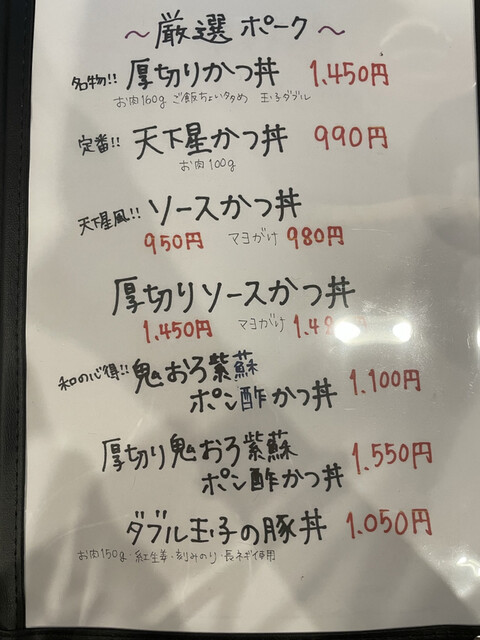 〜厳選 ポーク〜
名物!! 厚切りかつ丼 1.450円
お肉160g ご飯ちょい多め 玉子ダブル
定番!! 天下星かつ丼 990円
お肉100g
天下星風!! ソースかつ丼
950円 マヨがけ 980円
厚切りソースかつ丼
1.450円 マヨがけ
和の心得!! 鬼おろ紫蘇
ポン酢かつ丼 1.100円
厚切り鬼おろ紫蘇
ポン酢かつ丼 1.550円
ダブル玉子の豚丼 1.050円
お肉150g・紅生姜・刻みのり・長ネギ使用